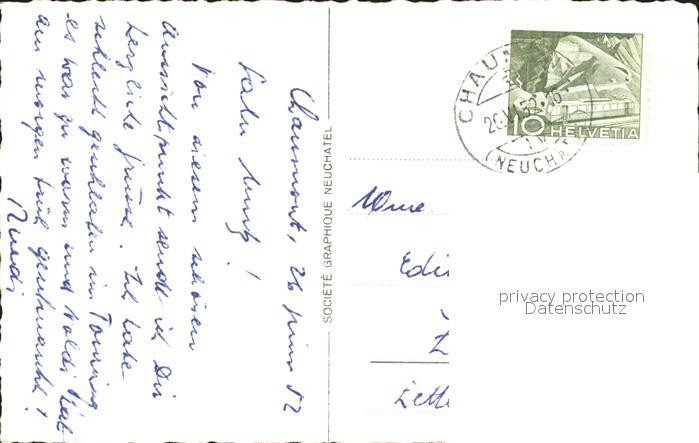 Chaumont, 26 Juni 52
Von diesem schönen
Aussichtspunkt sende ich Dir
herzliche Grüsse. Ich habe
schlecht geschlafen im Touring
es war zu warm und
am morgen früh
Ruedi
SOCIÉTÉ GRAPHIQUE NEUCHATEL
CHAUM
26.VI.52-16
(NEUCHA
10 HELVETIA
Mme.
Edi
Zette
privacy protection
Datenschutz